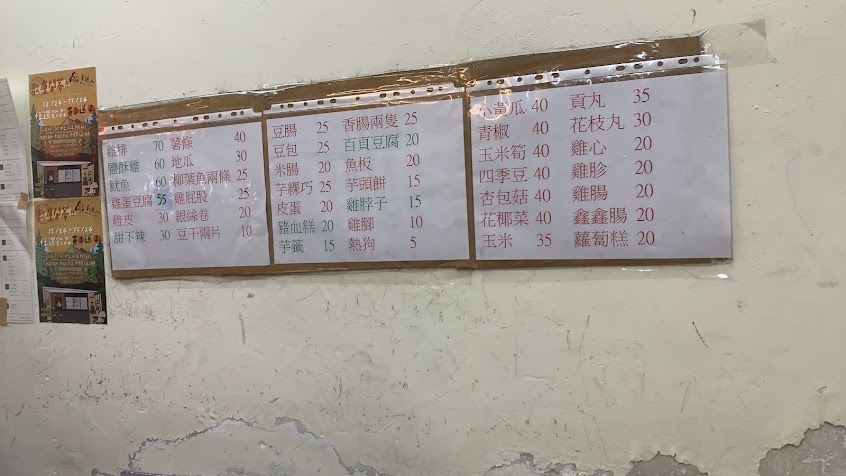 雞排 70 薯條 40
鹽酥雞 60 地瓜 30
魷魚 60 柳葉魚兩條 25
雞蛋豆腐 55 雞屁股 25
雞皮 30 銀絲卷 20
甜不辣 30 豆干兩片 10
豆腸 25 香腸兩隻 25
豆包 25 百頁豆腐 20
米腸 20 魚板 20
芋粿巧 25 芋頭餅 15
皮蛋 20 雞脖子 15
豬血糕 20 雞腳 10
芋籤 15 熱狗 5
小黃瓜 40 貢丸 35
青椒 40 花枝丸 30
玉米筍 40 雞心 20
四季豆 40 雞胗 20
杏包菇 40 雞腸 20
花椰菜 40 鑫鑫腸 20
玉米 35 蘿蔔糕 20
12/24-12/26